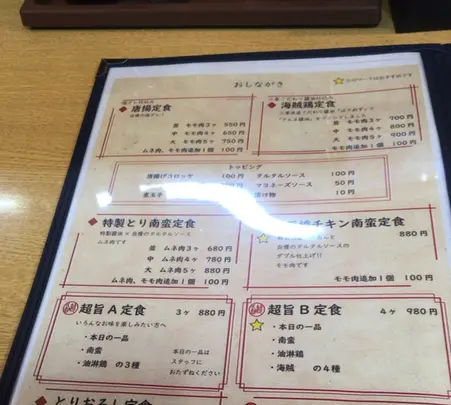 おしながき
唐揚定食
並 モモ肉3ヶ 550円
中 モモ肉4ヶ 650円
大 モモ肉5ヶ 750円
ムネ肉、モモ肉追加1個 100円
海賊鶏定食
並 モモ肉3ヶ 700円
中 モモ肉4ヶ 800円
大 モモ肉5ヶ 900円
モモ肉追加1個 100円
トッピング
唐揚げ 100円
タルタルソース 100円
マヨネーズソース 50円
煮玉子
漬け物 10円
特製とり南蛮定食
特製醤油 × 自慢のタルタルソース
ムネ肉です
並 ムネ肉3ヶ 680円
中 ムネ肉4ヶ 780円
大 ムネ肉5ヶ 880円
ムネ肉、モモ肉追加1個 100円
チキン南蛮定食
880円
自慢のタルタルソースの
ダブル仕上げ!!
モモ肉です
モモ肉追加1個 100円
超旨A定食 3ヶ 880円
いろんなお味を楽しみたい方へ
・本日の一品
・南蛮
・油淋鶏 の3種
本日の一品は
スタッフに
おたずねください
超旨B定食 4ヶ 980円
・本日の一品
・南蛮
・油淋鶏
・海賊 の4種
とりおろし定食